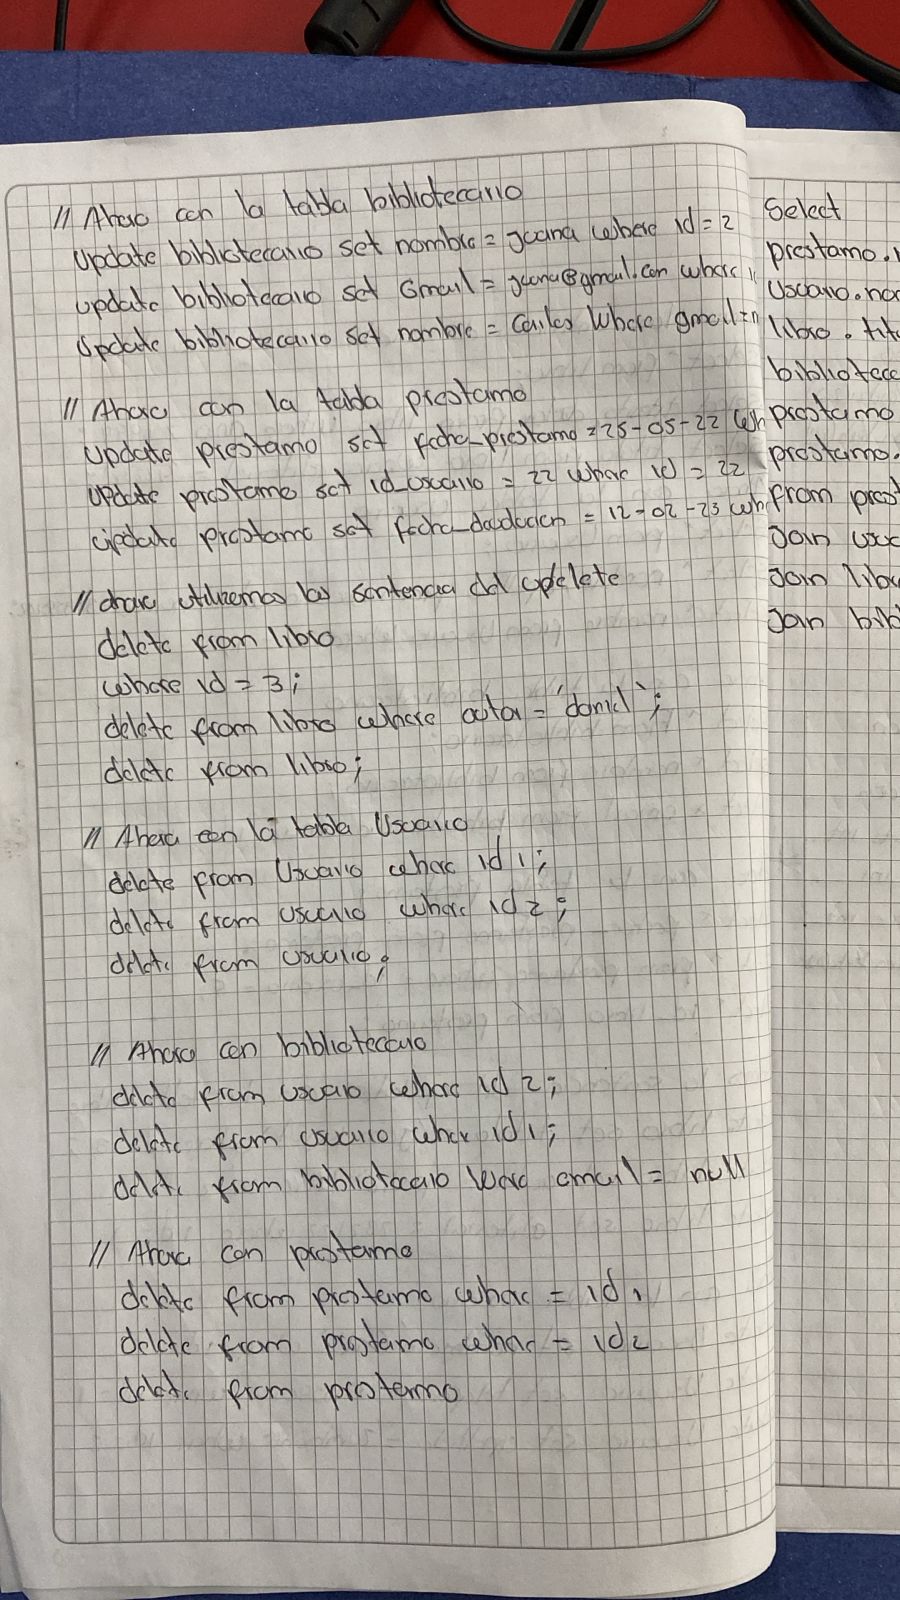 // Ahora con la tabla bibliotecario
Update bibliotecario set nombre = juana where id = 2
update bibliotecario set Gmail = juana@gmail.com where
Update bibliotecario set nombre = Carlos Where gmail =
// Ahora con la tabla prestamo
Update prestamo set fecha_prestamo = 25-05-22 wh
Update prestamo set id_usuario = 22 where id = 22
update prestamo set fecha_devolucion = 12-02-23 wh
// ahora utilizemos las sentencia del delete
delete from libro
where id = 3;
delete from libro where autor = 'daniel';
delete from libro;
// Ahora con la tabla Usuario
delete from Usuario where id 1;
delete from usuario where id 2;
delete from usuario;
// Ahora con bibliotecario
delete from usuario where id 2;
delete from usuario wher id 1;
delete from bibliotecario were email = null
// Ahora con prestamo
delete from prestamo where = id 1
delete from prestamo where = id 2
delete from prestamo
Select
prestamo.
Usuario.no
libro.tit
bibliotec
prestamo
prestamo.
from pres
Join usu
Join lib
Join bib